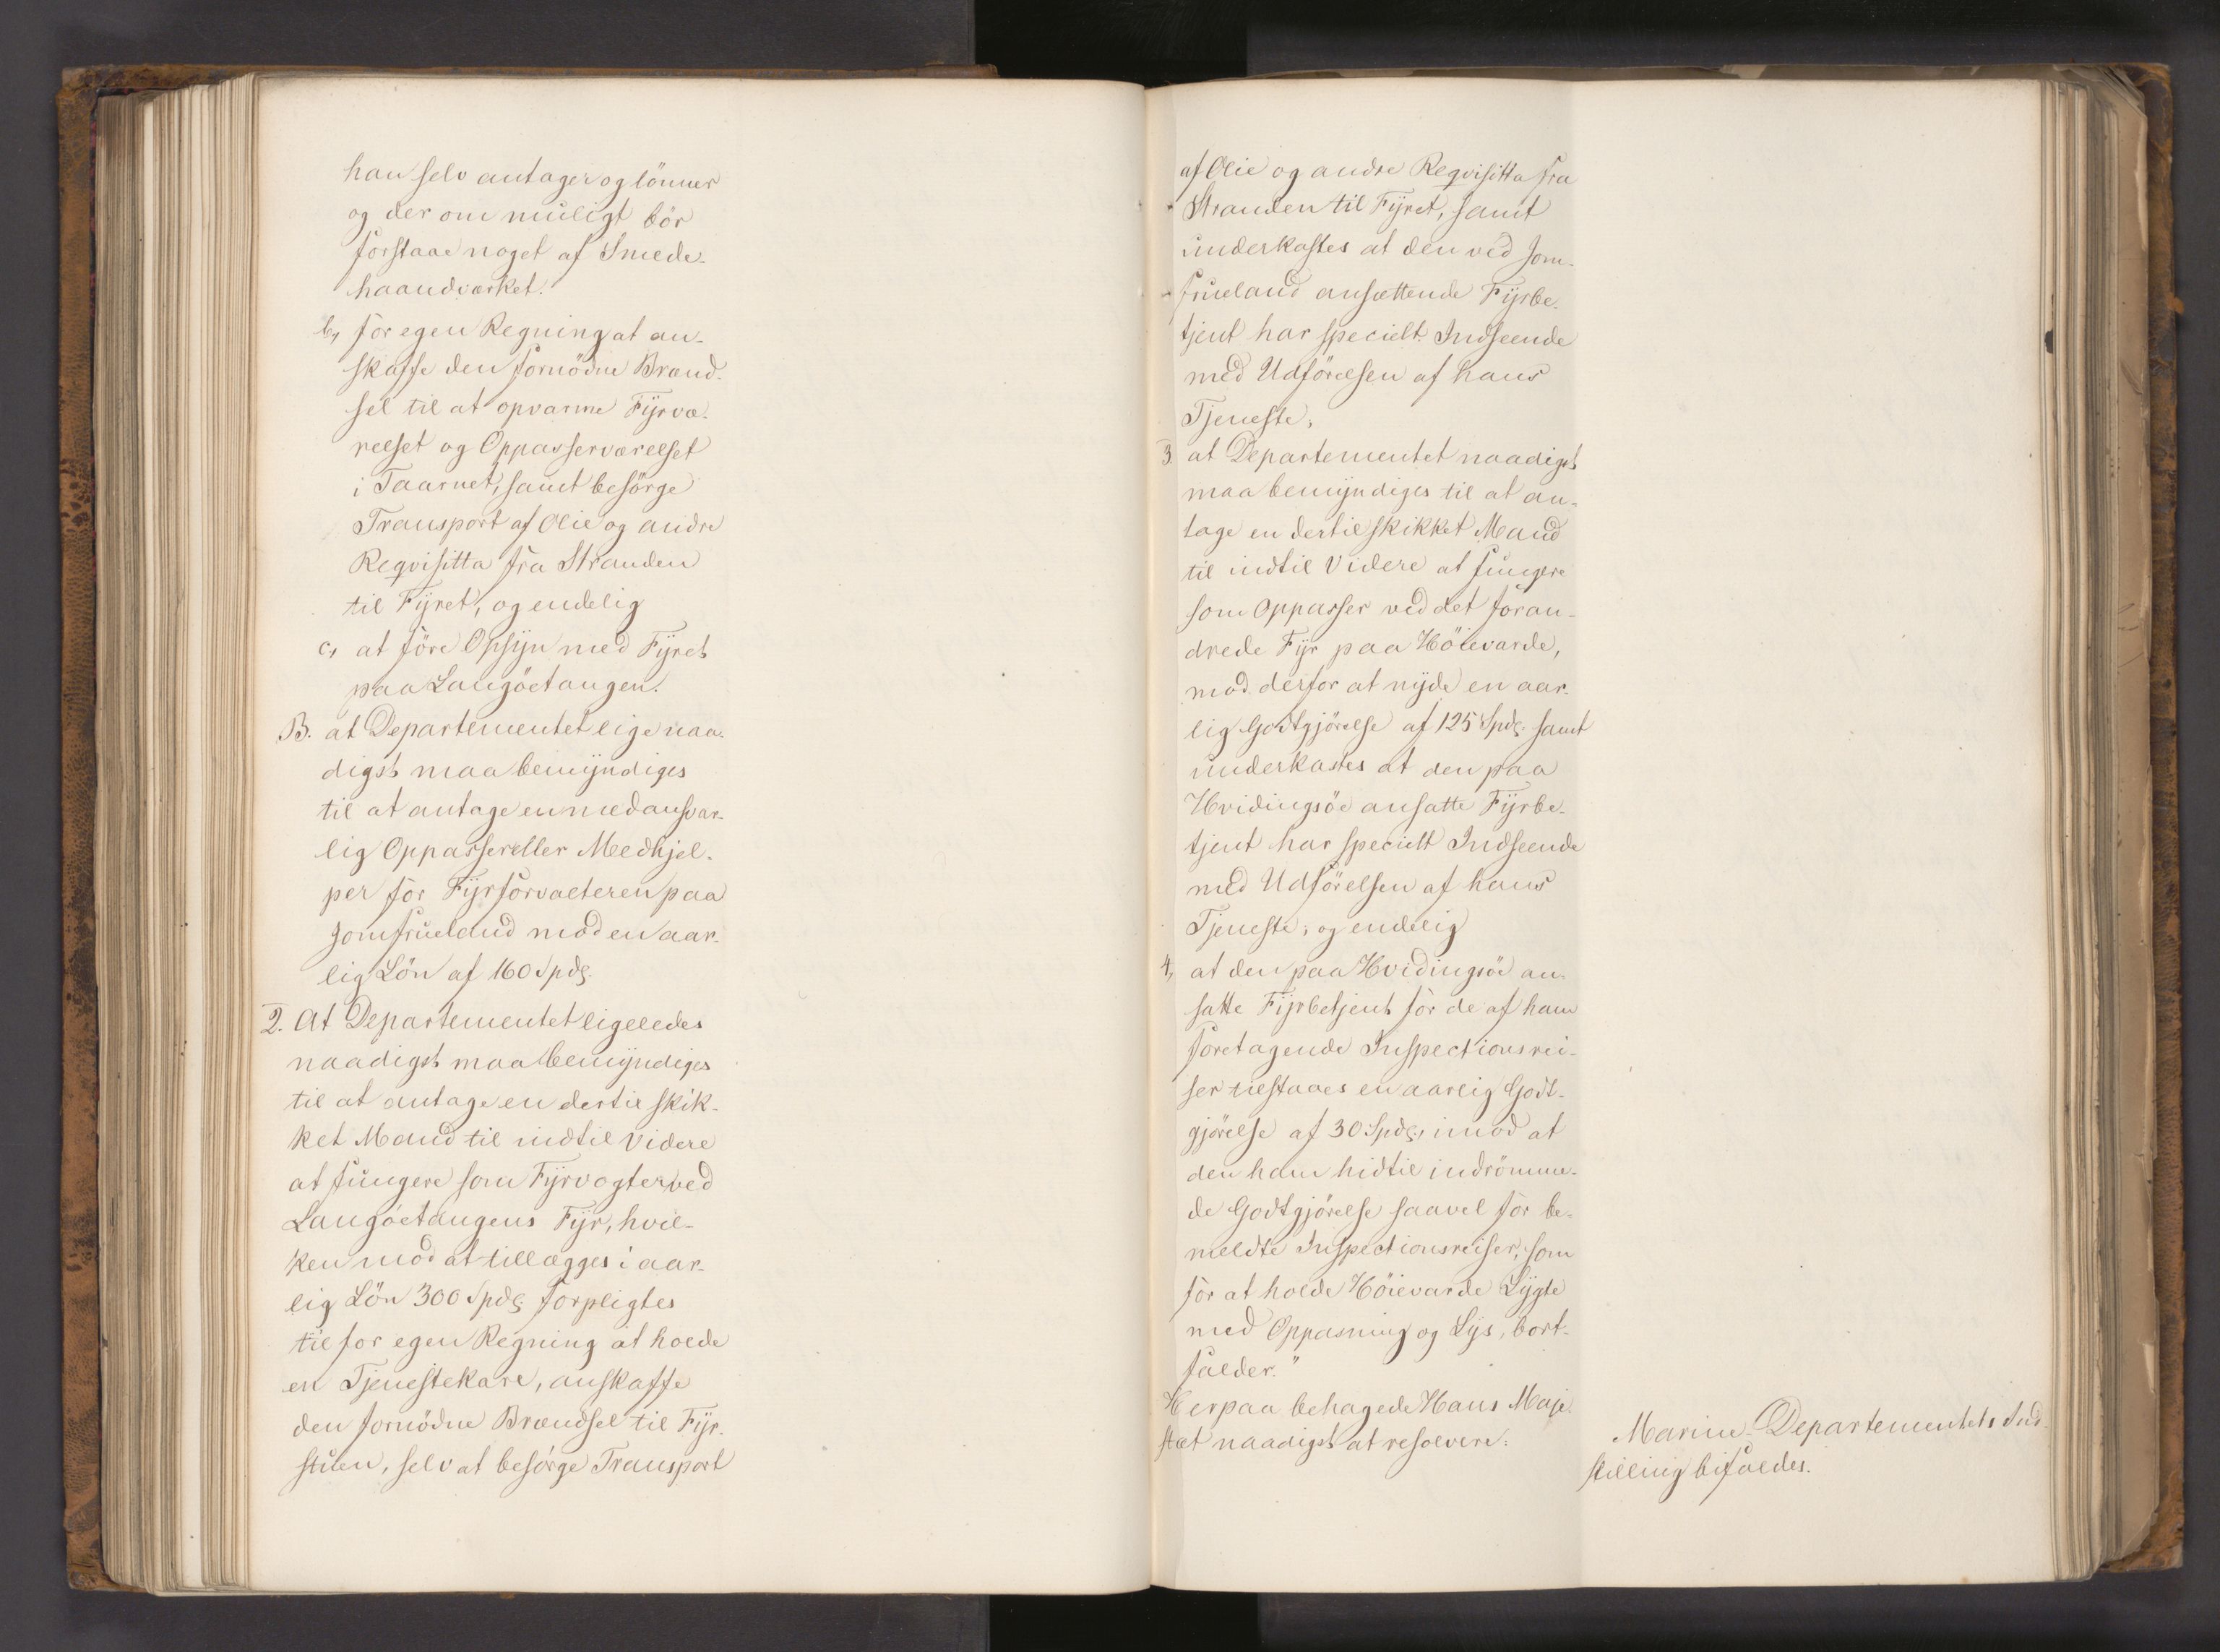 han selv antager og lönner
og der om muligt bör
forstaae noget af Smede-
haandværket.
b, for egen Regning at an-
skaffe den fornödne Brænd-
sel til at opvarme Fyrvæ-
relset og Oppasserværelset
i Taarnet, samt besörge
Transport af Olie og andre
Reqvisitta fra Stranden
til Fyret, og endelig
c, at före Opsyn med Fyret
paa Langöetangen.
B. at Departementet lige naa-
digst maa bemyndiges
til at antage en medansvar-
lig Oppasser eller Medhjel-
per for Fyrforvalteren paa
Jomfrueland mod en aar-
lig Lön af 160 Spdlr.
2. At Departementet ligeledes
naadigst maa bemyndiges
til at antage en dertil skik-
ket Mand til indtil Videre
at fungere som Fyrvogter ved
Langöetangens Fyr, hvil-
ken mod at tillægges i aar-
lig Lön 300 Spdlr. forpligtes
til for egen Regning at holde
en Tjenestekarl, anskaffe
den fornödne Brændsel til Fyr-
stuen, selv at besörge Transport
af Olie og andre Reqvisitta fra
Stranden til Fyret, samt
underkastes at den ved Jom-
frueland ansættende Fyrbe-
tjent har specielt Indseende
med Udförelsen af hans
Tjeneste;
3. at Departementet naadigst
maa bemyndiges til at an-
tage en dertil skikket Mand
til indtil Videre at fungere
som Oppasser ved det foran-
drede Fyr paa Höievarde,
mod derfor at nyde en aar-
lig Godtgjörelse af 125 Spdlr. samt
underkastes at den paa
Hvidingsöe ansatte Fyrbe-
tjent har specielt Indseende
med Udförelsen af hans
Tjeneste; og endelig
4, at den paa Hvidingsöe an-
satte Fyrbetjent for de af ham
foretagende Inspectionsrei-
ser tilstaaes en aarlig Godt-
gjörelse af 30 Spdlr., imod at
den ham hidtil indrömme-
de Godtgjörelse saavel for be-
meldte Inspectionsreiser, som
for at holde Höievarde Lygte
med Oppasning og Lys, bort-
falder."
Herpaa behagede Hans Maje-
stæt naadigst at resolvere:
Marine-Departementets Ind-
stilling bifaldes.